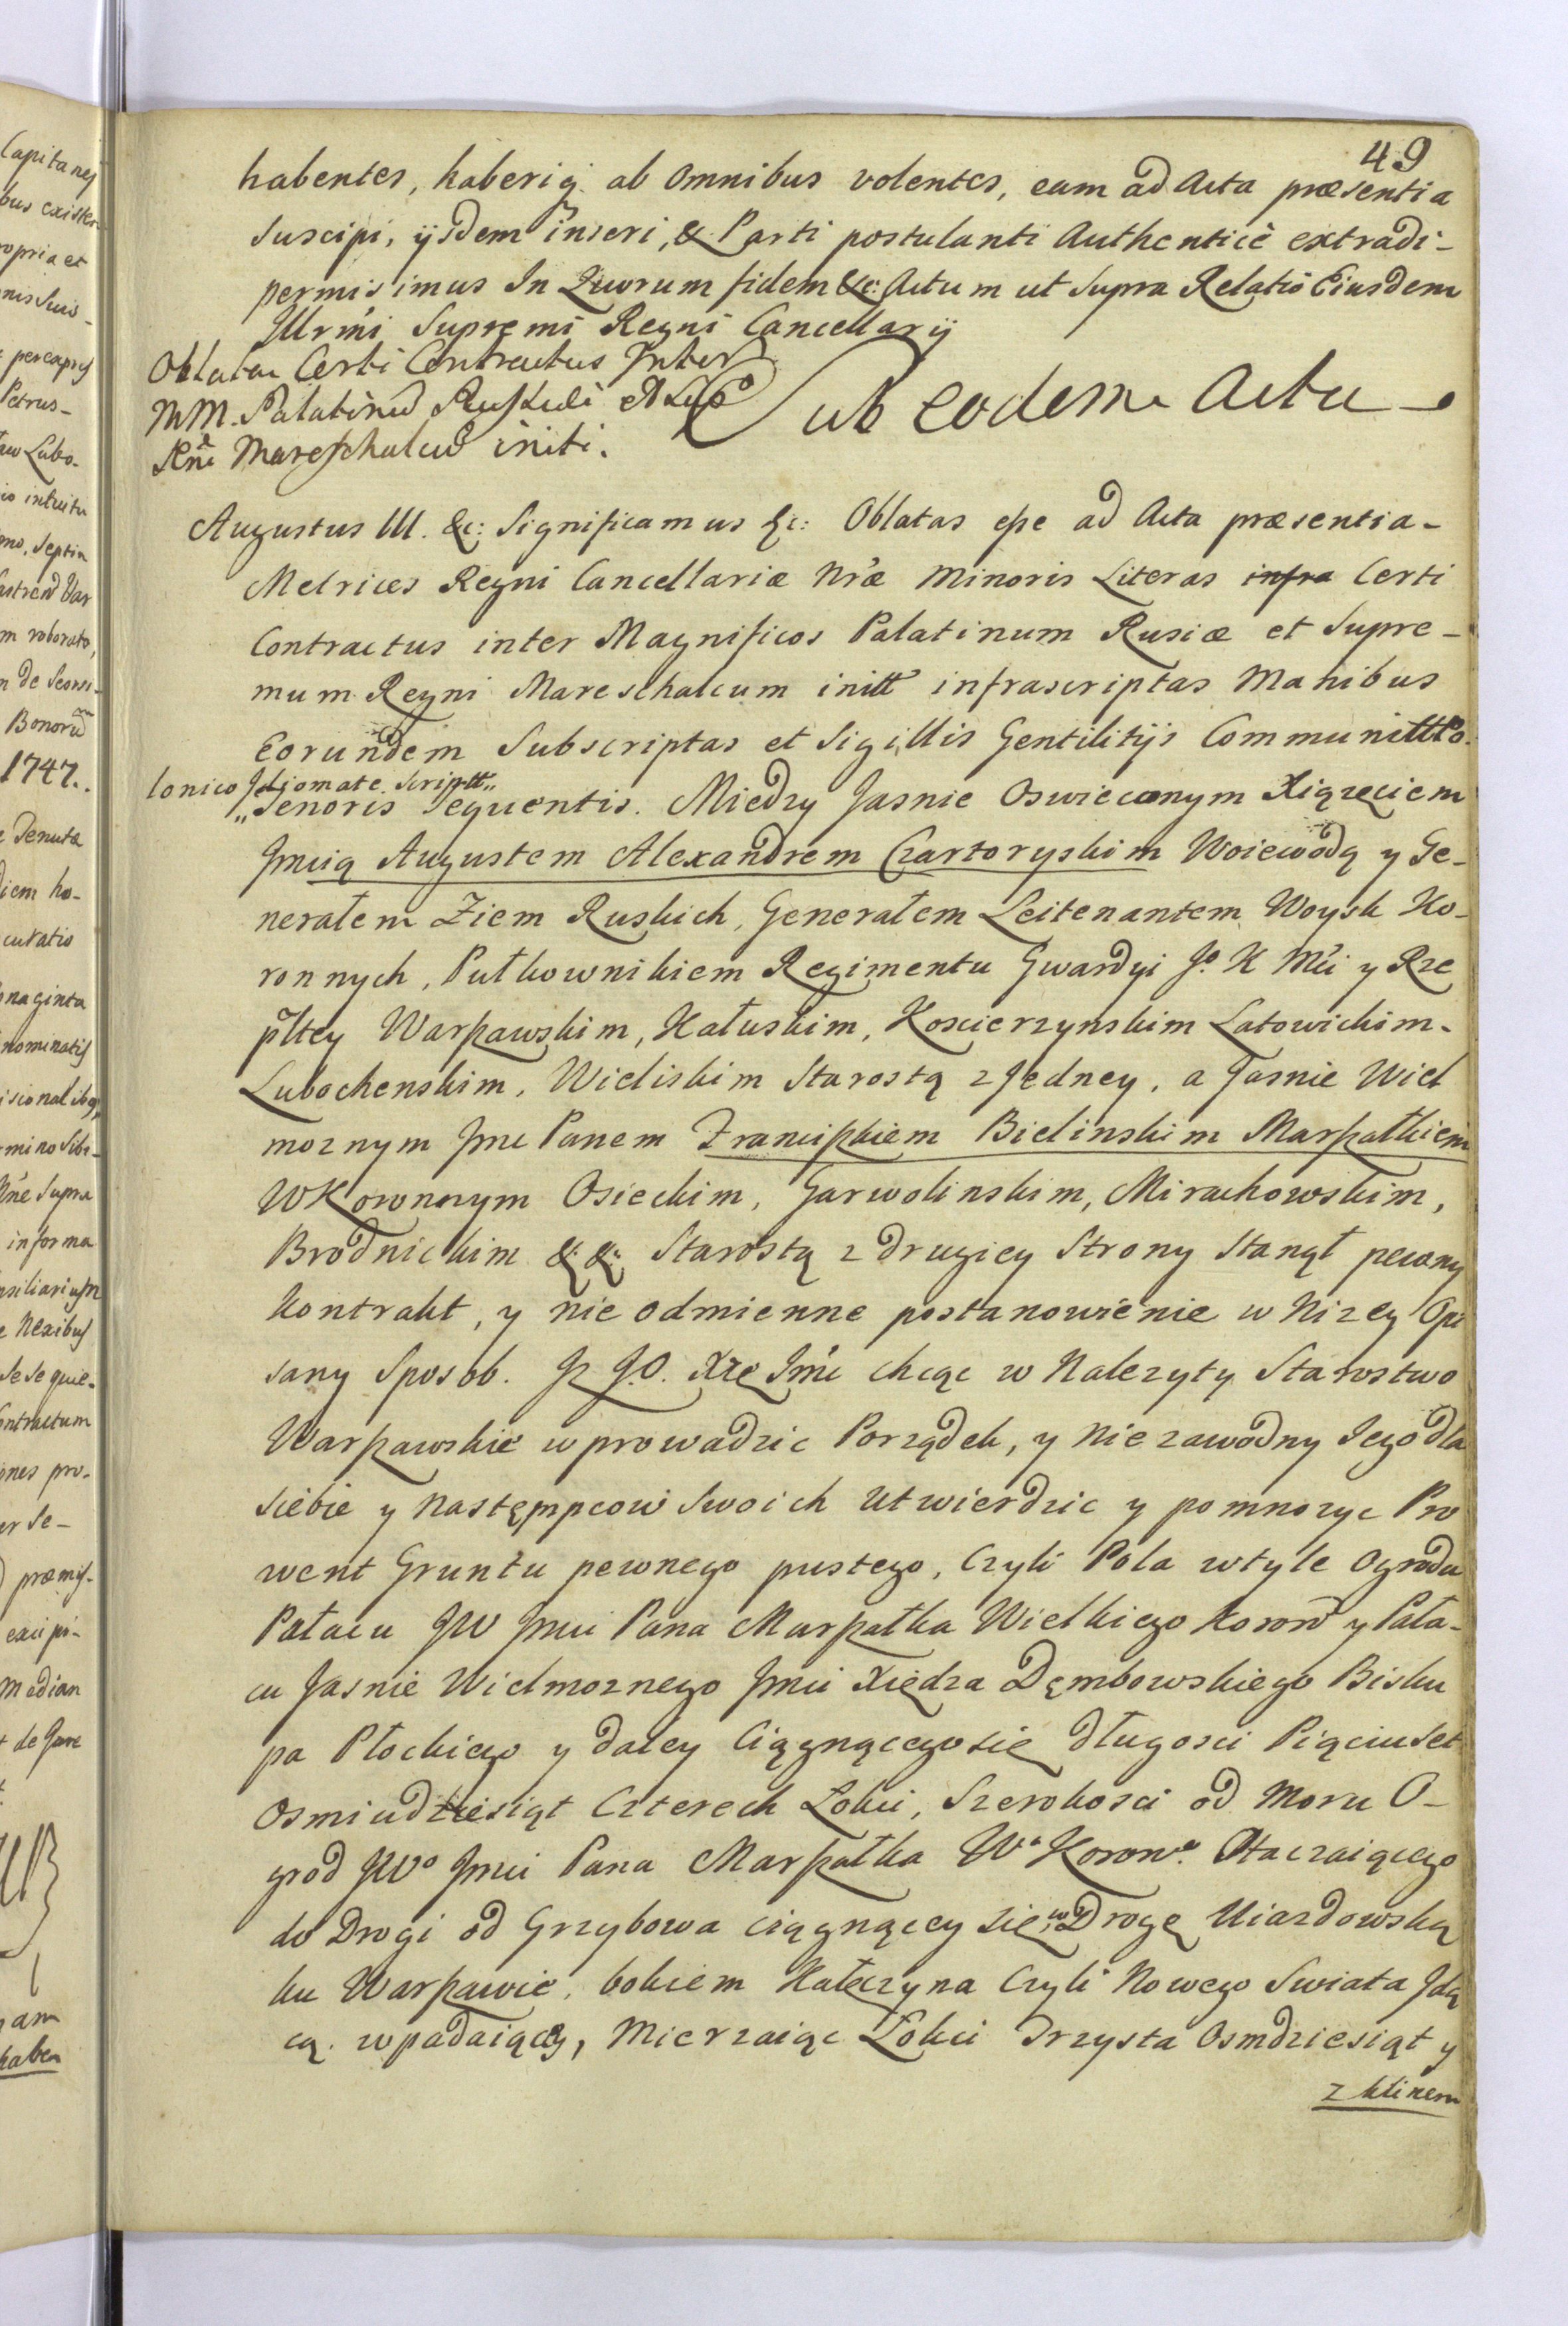 49
habentes, haberiq. ab omnibus volentes, eam ad Acta præsentia
suscipi, ijsdem inseri, & Parti postulanti Authenticè extradi-
permisimus In Quorum fidem &c: Actum ut Supra Relatio Eiusdem
Illrmi Supremi Regni Cancellarij
Oblatae Certi Contractus Inter
MM. Palatinu Russiae et Sup
Rni Mareschalcu initi.
Sub eodem Actu
Augustus III. &c: Significamus &c: Oblatas esse ad Acta præsentia-
Metrices Regni Cancellariæ Nræ Minoris Literas infra Certi
Contractus inter Magnificos Palatinum Rusiæ et Supre-
mum Regni Mareschalcum initt infrascriptas Manibus
Eorundem Subscriptas et Sigillis Gentilitijs Communitt Po-
lonico Idiomate Scriptt
Tenoris Sequentis. Miedzy Jasnie Oswieconym Xiązęciem
Jmcią Augustem Alexandrem Czartoryskim Woiewodą y Ge-
nerałem Ziem Ruskich, Generałem Leitenantem Woysk Ko-
ronnych, Pułkownikiem Regimentu Gwardyi Jo K Mci y Rze
pltey Warszawskim, Kałuskim, Koscierzynskim Latowickim-
Lubochenskim, Wieliskim Starostą z Jedney, a Jasnie Wiel
moznym Jmc Panem Franciszkiem Bielinskim Marszałkiem
WKoronnym Osieckim, Garwolinskim, Mirachowskim,
Brodnickim &: &: Starostą z drugiey Strony Stanął pewny
Kontrakt, y nie odmienne postanowienie w Nizey Opi
sany Sposob. Jz J.O. Xże Jmć chcąc w Nalezyty Starostwo
Warszawskie wprowadzic Porządek, y Nie zawodny Jego dla
siebie y Następmpcow Swoich Utwierdzic y pomnozyc Pro
went Gruntu pewnego pustego, Czyli Pola wtyle Ogrodu
Pałacu JW Jmci Pana Marszałka Wielkiego Koron y Pała-
cu Jasnie Wielmoznego Jmci Xiędza Dęmbowskiego Bisku
pa Płockiego y daley Ciągnącego się długosci Piąciuset
Osmiudziesiąt Czterech Łokci, Szerokosci od Moru O-
grod JWo Jmci Pana Marszałka Wo Koronno Otaczaiącego
do Drogi od Grzybowa ciągnącey się w Drogę Uiazdowską
ku Warszawie, bokiem Kałęczyna Czyli Nowego Swiata Jdą
cą. wpadaiącey, Mierzaiąc Łokci Trzysta Osmdziesiąt y
z klinem